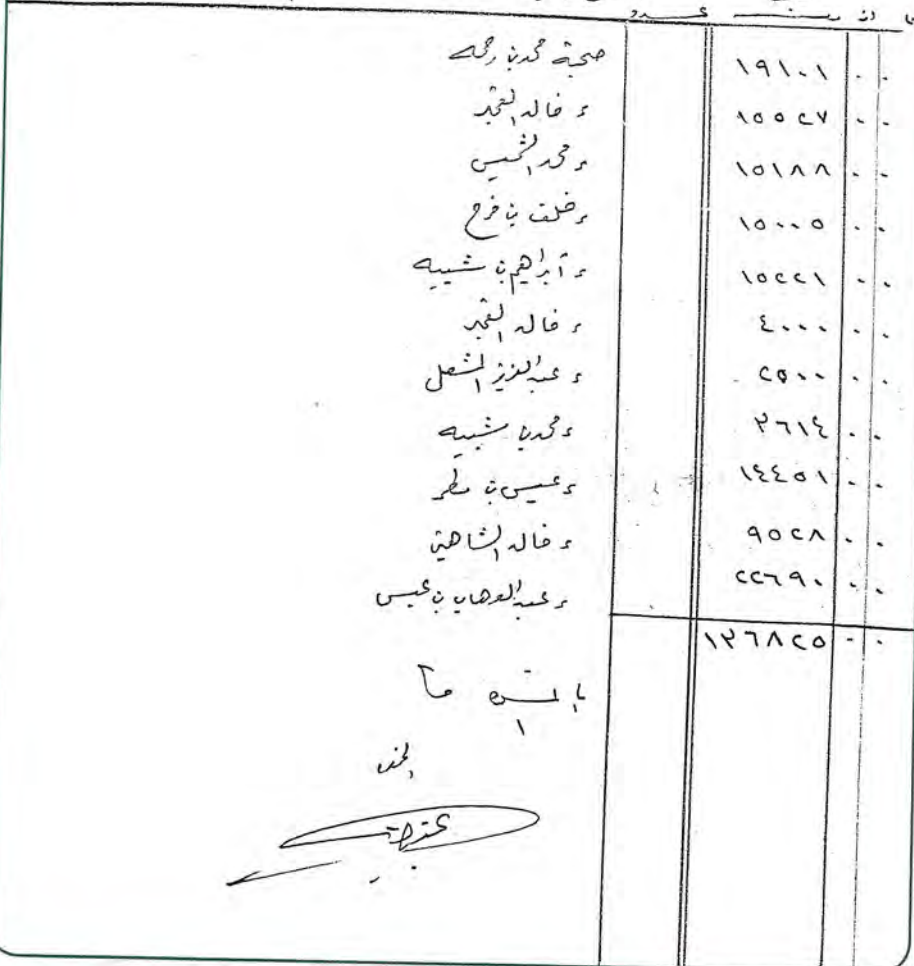 عدد
صحبة محمد بن رحمه ١٩١٠١ ٠ ٠
ء خالد الفجر ١٥٥٢٧ ٠ ٠
ء محمد الخميس ١٥١٨٨ ٠ ٠
ء خلف بن فرج ١٥٠٠٥ ٠ ٠
ء ابراهيم بن شبيب ١٥٢٢١ ٠ ٠
ء خالد الفجر ٤٠٠٠ ٠ ٠
ء عبدالعزيز المشعل ٢٥٠٠ ٠ ٠
ء محمد بن شبيب ٣٦١٤ ٠ ٠
ء عيسى بن مطر ١٤٤٥١ ٠ ٠
ء خالد الشاهين ٩٥٢٨ ٠ ٠
ء عبدالوهاب بن عيسى ٢٢٦٩٠ ٠ ٠
١٣٦٨٢٥ ٠ ٠